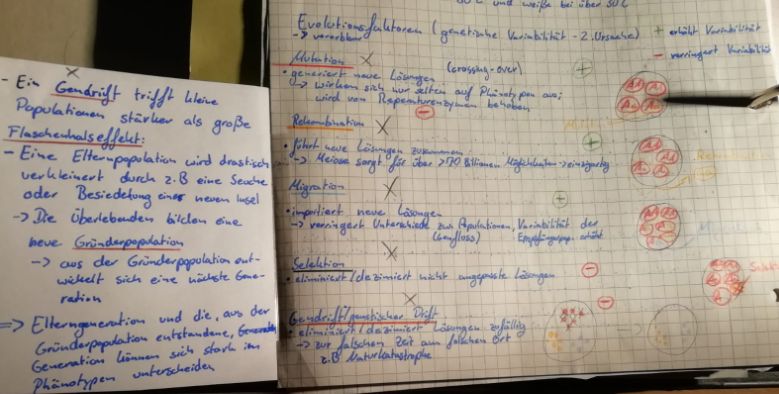 - Ein Gendrift trifft kleine
Populationen stärker als große
Flaschenhalseffekt:
- Eine Elternpopulation wird drastisch
verkleinert durch z.B eine Seuche
oder Besiedelung einer neuen Insel
-> Die Überlebenden bilden eine
neue Gründerpopulation
-> aus der Gründerpopulation ent-
wickelt sich eine nächste Gene-
ration
=> Elterngeneration und die, aus der
Gründerpopulation entstandene,
Generation können sich stark im
Phänotypen unterscheiden
und weiße bei über 30°C
Evolutionsfaktoren (genetische Variabilität - 2. Ursache) + erhöht Variabilität
-> vererbbar - verringert Variabilität
Mutation (crossing-over) +
• generiert neue Lösungen
-> wirken sich nur selten auf Phänotypen aus;
wird von Reperaturenzymen behoben
-
Rekombination
+
• führt neue Lösungen zusammen
-> Meiose sorgt für über >70 Billionen Möglichkeiten -> einzigartig
Migration +
• importiert neue Lösungen
-> verringert Unterschiede zum Populationen, Variabilität der
(Genfluss) Empfängerpop. erhöht
Selektion
• eliminiert/dezimiert nicht angepasste Lösungen -
Gendrift/genetischer Drift -
• eliminiert/dezimiert Lösungen zufällig
-> zur falschen Zeit am falschen Ort
z.B Naturkatastrophe